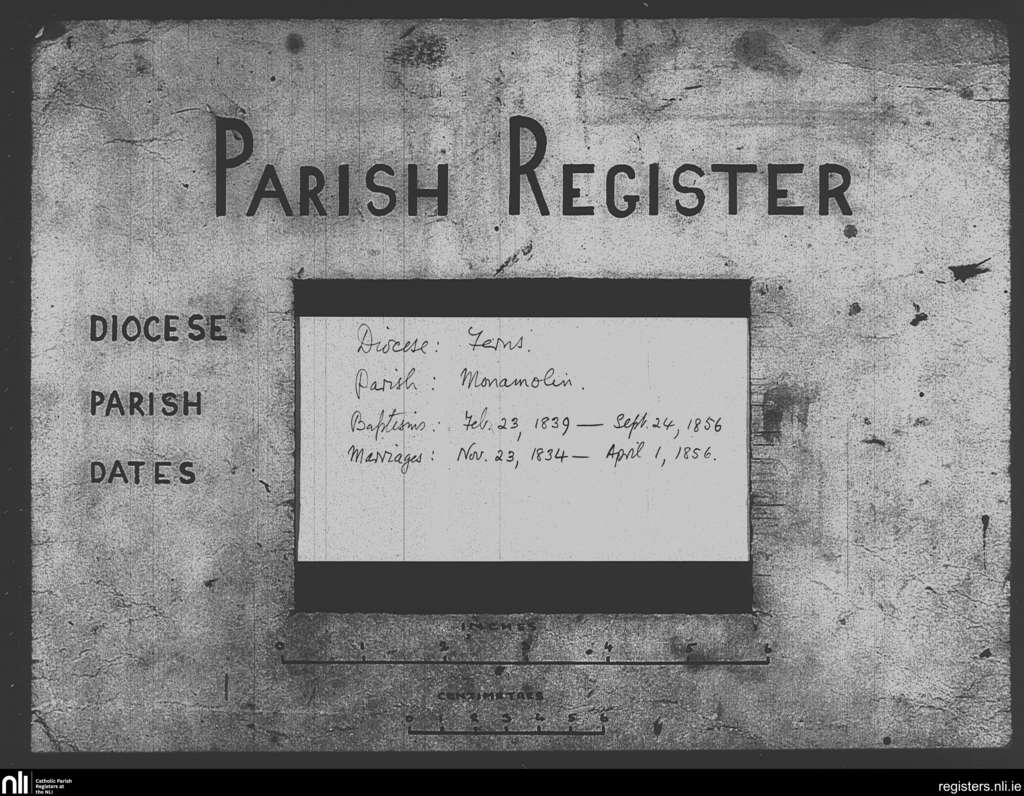 PARISH REGISTER
DIOCESE
PARISH
DATES
Diocese: Ferns.
Parish: Monamolin.
Baptisms: Feb. 23, 1839 — Sept. 24, 1856
Marriages: Nov. 23, 1834 — April 1, 1856.
INCHES
0 1 2 3 4 5 6
CENTIMETRES
0 1 2 3 4 5 6
nli
Catholic Parish
Registers at
the NLI
registers.nli.ie